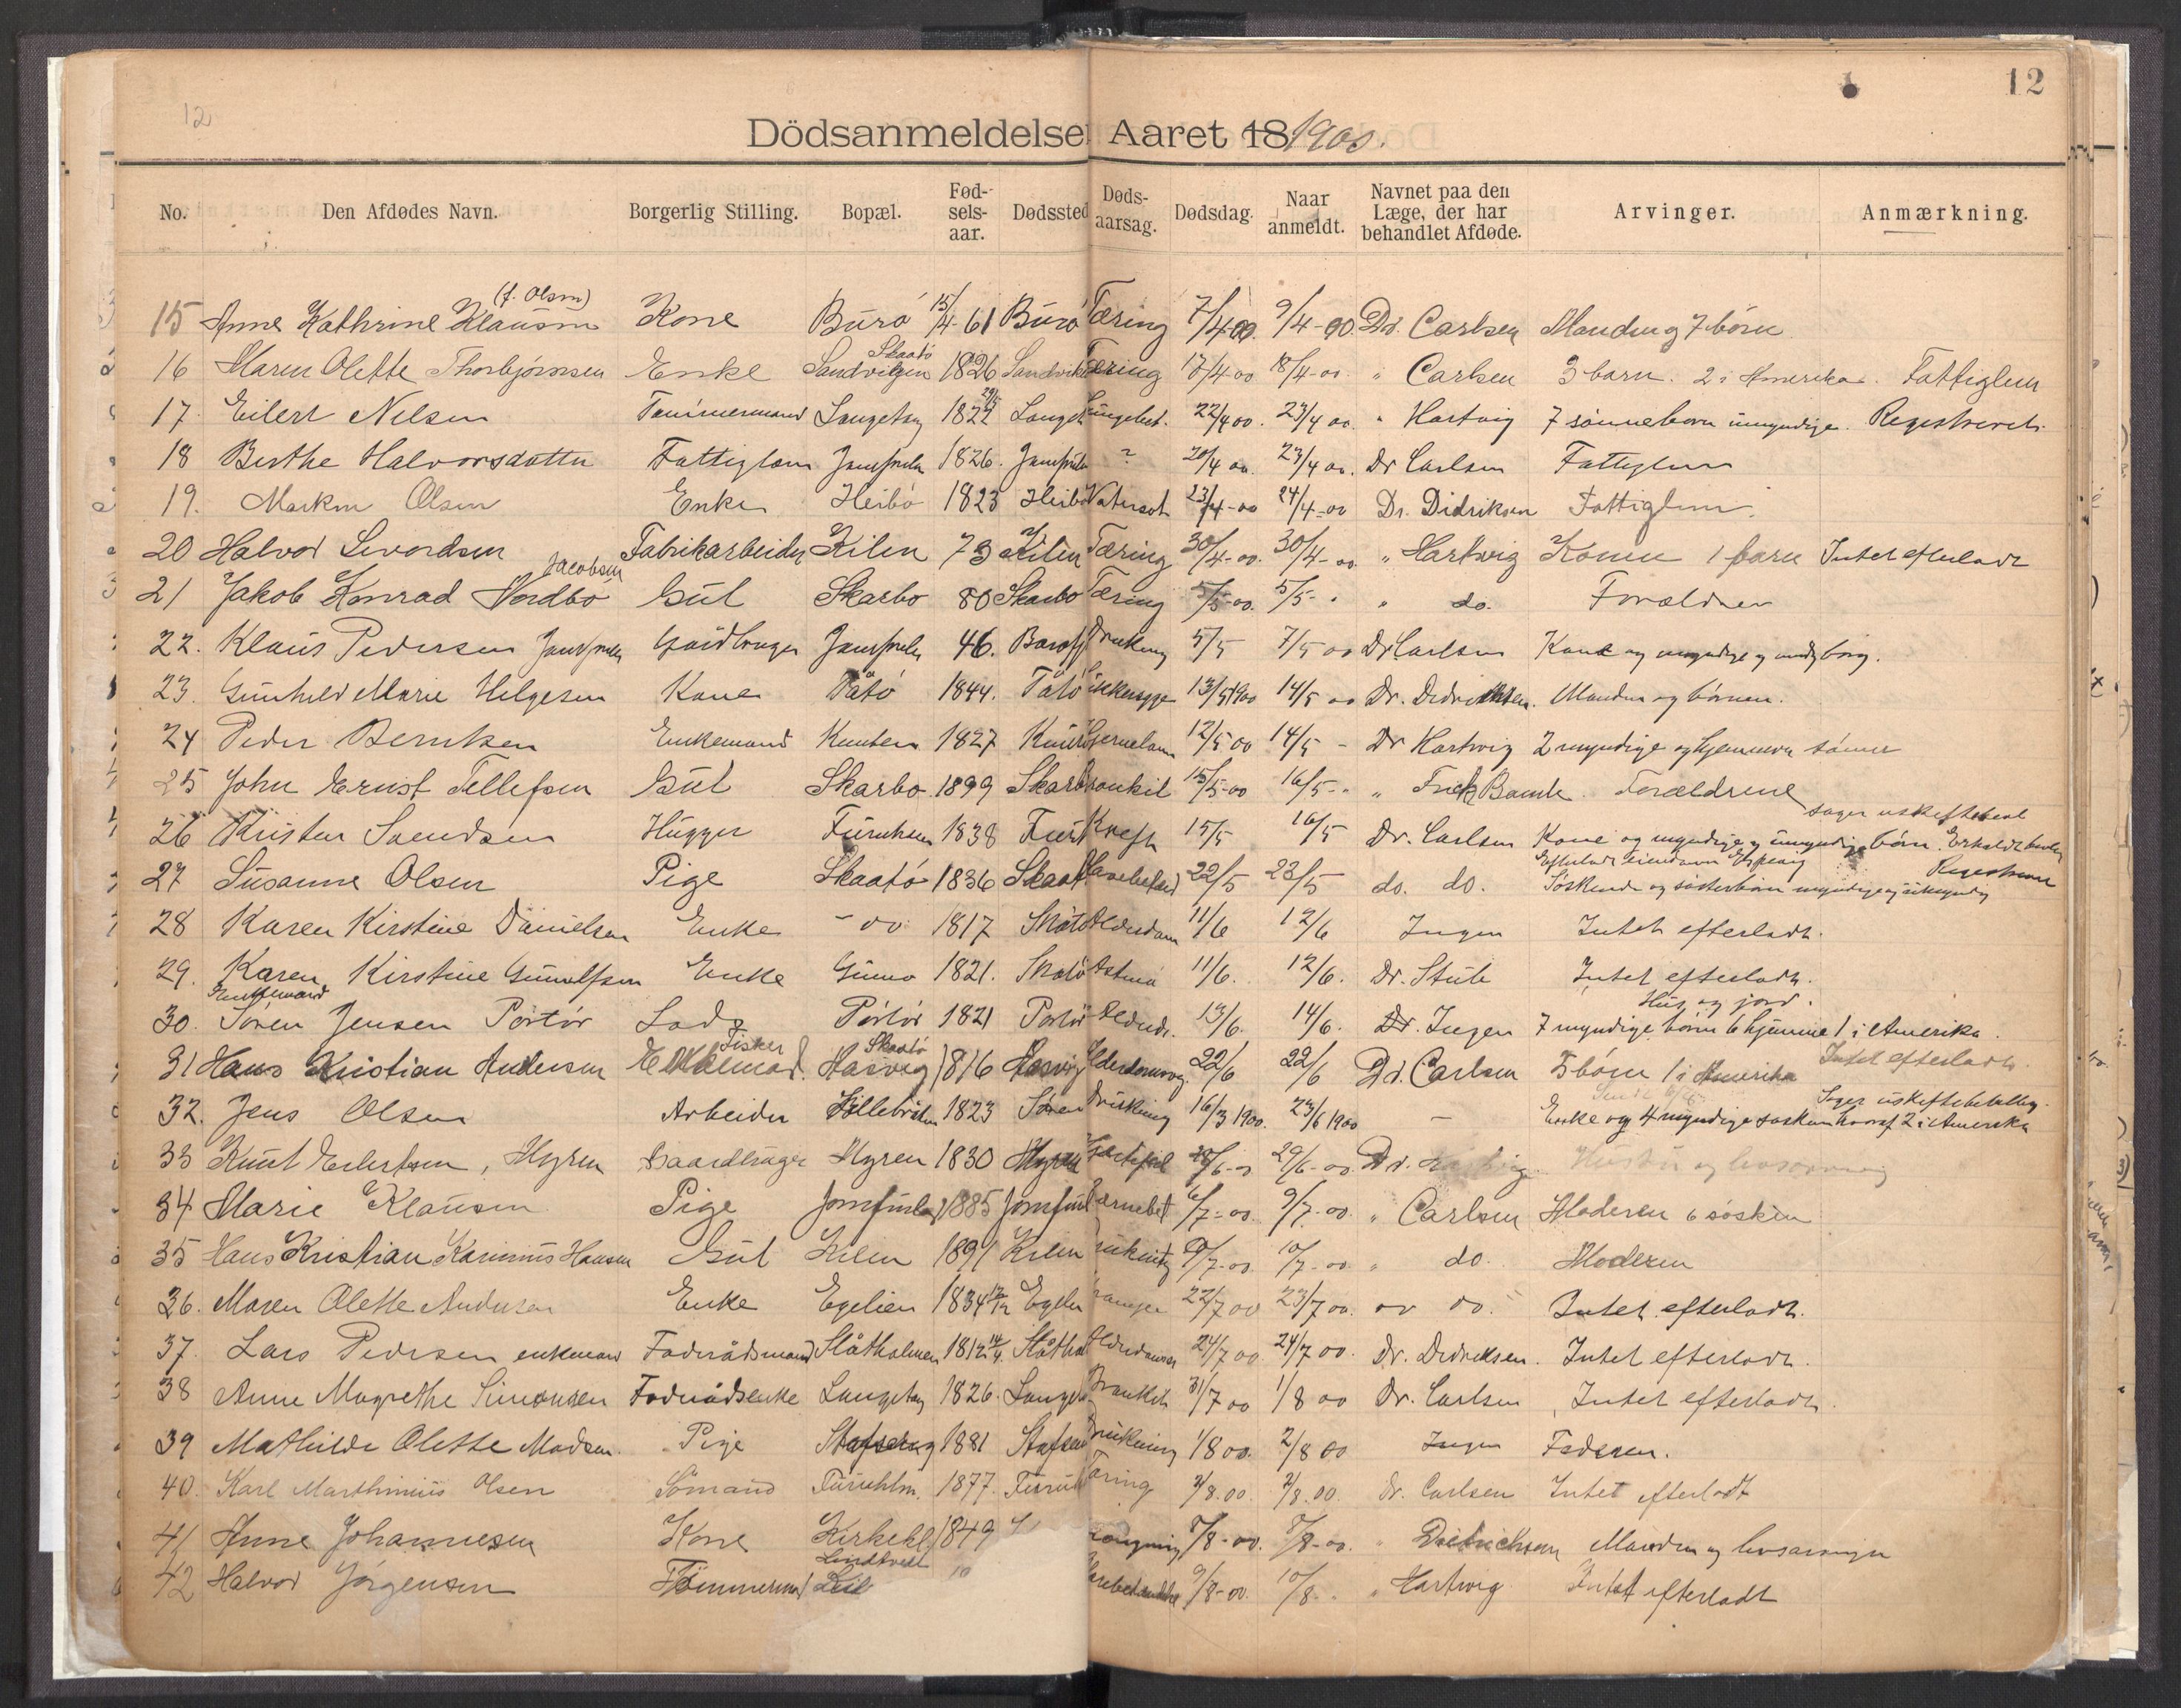 12
12
Dödsanmeldelse Aaret 18 1900.
No. Den Afdødes Navn. Borgerlig Stilling. Bopæl. Fød-sels-aar. Dødssted Døds-aarsag. Dødsdag. Naar anmeldt. Navnet paa den Læge, der har behandlet Afdøde. Arvinger. Anmærkning.
(f. Olsen)
15 Anne Kathrine Klausen Kone Burø 15/4-61 Burø Tæring 7/4-00. 9/4-00. Dr. Carlsen Manden og 7 børn
Skaatø
16 Maren Olette Thorbjørnsen Enke Sandvigen 1826 Sandvik Tæring 17/4-00 18/4-00. " Carlsen 3 barn. 2 i Amerika. Fattiglem
17. Eilert Nilsen Tømmermand Langetay 1822 Langet Lungebet. 22/4 00. 23/4 00. " Hartvig 7 sønnebørn umyndige. Registreret.
18 Berthe Halvorsdatter Fattiglem Jomfrul 1826. Jomfrul ? 20/4 00. 23/4 00. Dr Carlsen Fattiglem
19. Olsen Enke Heibø 1823 Heibø Vatersot 23/4-00 24/4-00 Dr. Didriksen Fattiglem.
20 Halvor Sivordsen Fabrikarbeider Kilen 73 Kilen Tæring 30/4-00. 30/4-00. " Hartvig Konen 1 barn Intet efterladt
Jacobsen
21 Jakob Konrad Nordbø Gut Skarbo 80 Skarbo Tæring 5/5-00. 5/5-" " do. Forældrer
22. Klaus Pedersen Jomfrul Gaardbruger Jomfrul 46. Drukning 5/5 7/5 00 Dr Carlsen Kone og myndige og børn.
23. Gunhild Marie Helgesen Kone Tåtø 1844. Tåtø 13/5 1900 14/5 00 Dr. Didriksen. Manden og børnene.
24 Peder Berntsen Enkemand 1827 12/5 00 14/5 - Dr Hartvig 2 myndige og hjemmev. sønner
25 John Ernst Tellefsen Gut Skarbo 1899 Skarb Bronkit 15/5-00 16/5-" " Frich Bamle. Forældrene
26 Kristen Svendsen Hugger Furuholm 1838 Furu Kreft 15/5 16/5 Dr. Carlsen Kone og myndige og umyndige børn.
27 Susanne Olsen Pige Skaatø 1836 Skaat 22/5 23/5 do. do. Søskende og søsterbørn myndige og umyndig
28 Karen Kirstine Danielsen Enke - do 1817 Skåtø Alderdom 11/6 12/6 Ingen Intet efterladt.
29. Karen Kirstine Gunnulfsen Enke Gumø 1821. Skåtø Astma 11/6. 12/6. Dr. Stub Intet efterladt.
Enkemand Hus og jord.
30. Søren Jensen Portør Lods Portør 1821 Portør Alderd. 13/6. 14/6. Dr. Ingen 7 myndige børn 6 hjemme 1 i Amerika.
Fisker Skaatø
31 Hans Kristian Andersen Enkemand. Hasvig 1816 Hasvig Alderdomsvag. 22/6 22/6 Dr. Carlsen 5 børn 1 i Amerika Intet efterladt.
32. Jens Olsen Arbeider 1823 Drukning 16/3 1900. 23/6 1900 - Enke og 4 myndige søsken hvoraf 2 i Amerika
33 Knut Eilertsen, Hyren Gaardbruger Hyren 1830 Hyren Hjertefeil 28/6-00 29/6-00 Dr. Hartvig. Hustru og livsarving
34 Marie Klausen Pige Jomfruland 1885 Jomfrul 6/7-00. 9/7-00. " Carlsen Moderen 6 søsken
35 Hans Kristian Karinius Hansen Gut Kilen 1891 Kilen Drukning 9/7-00. 10/7-00. " do. Moderen
36. Maren Olette Andersen Enke Egelien 1834 Egelie 22/7 00 23/7 00. do do. Intet efterladt.
37. Lars Pedersen enkemand Foderådsmand Slåtholmen 1812 14/4. Slåthol Alderdomsv 24/7 00. 24/7 00. Dr. Didriksen. Intet efterladt.
38 Anne Magrethe Simonsen Foderådsenke Langetay 1826. Langeta Bronkit 31/7 00 1/8 00 Dr. Carlsen Intet efterladt.
39 Mathilde Olette Madsen. Pige Stafseng 1881 Stafsen Drukning 1/8 00. 2/8 00 Ingen Faderen.
40. Karl Marthinius Olsen Sømand Furuholm. 1877. Furuh Tæring 2/8.00. 2/8.00. Dr. Carlsen Intet efterladt
41 Anne Johannesen Kone Kirkebl. 1849 7/8-00. 8/8-00. " Diedrichsen Manden og livsarvinger
42 Halvor Jørgensen Tømmermand 9/8-00. 10/8-" " Hartvig Intet efterladt